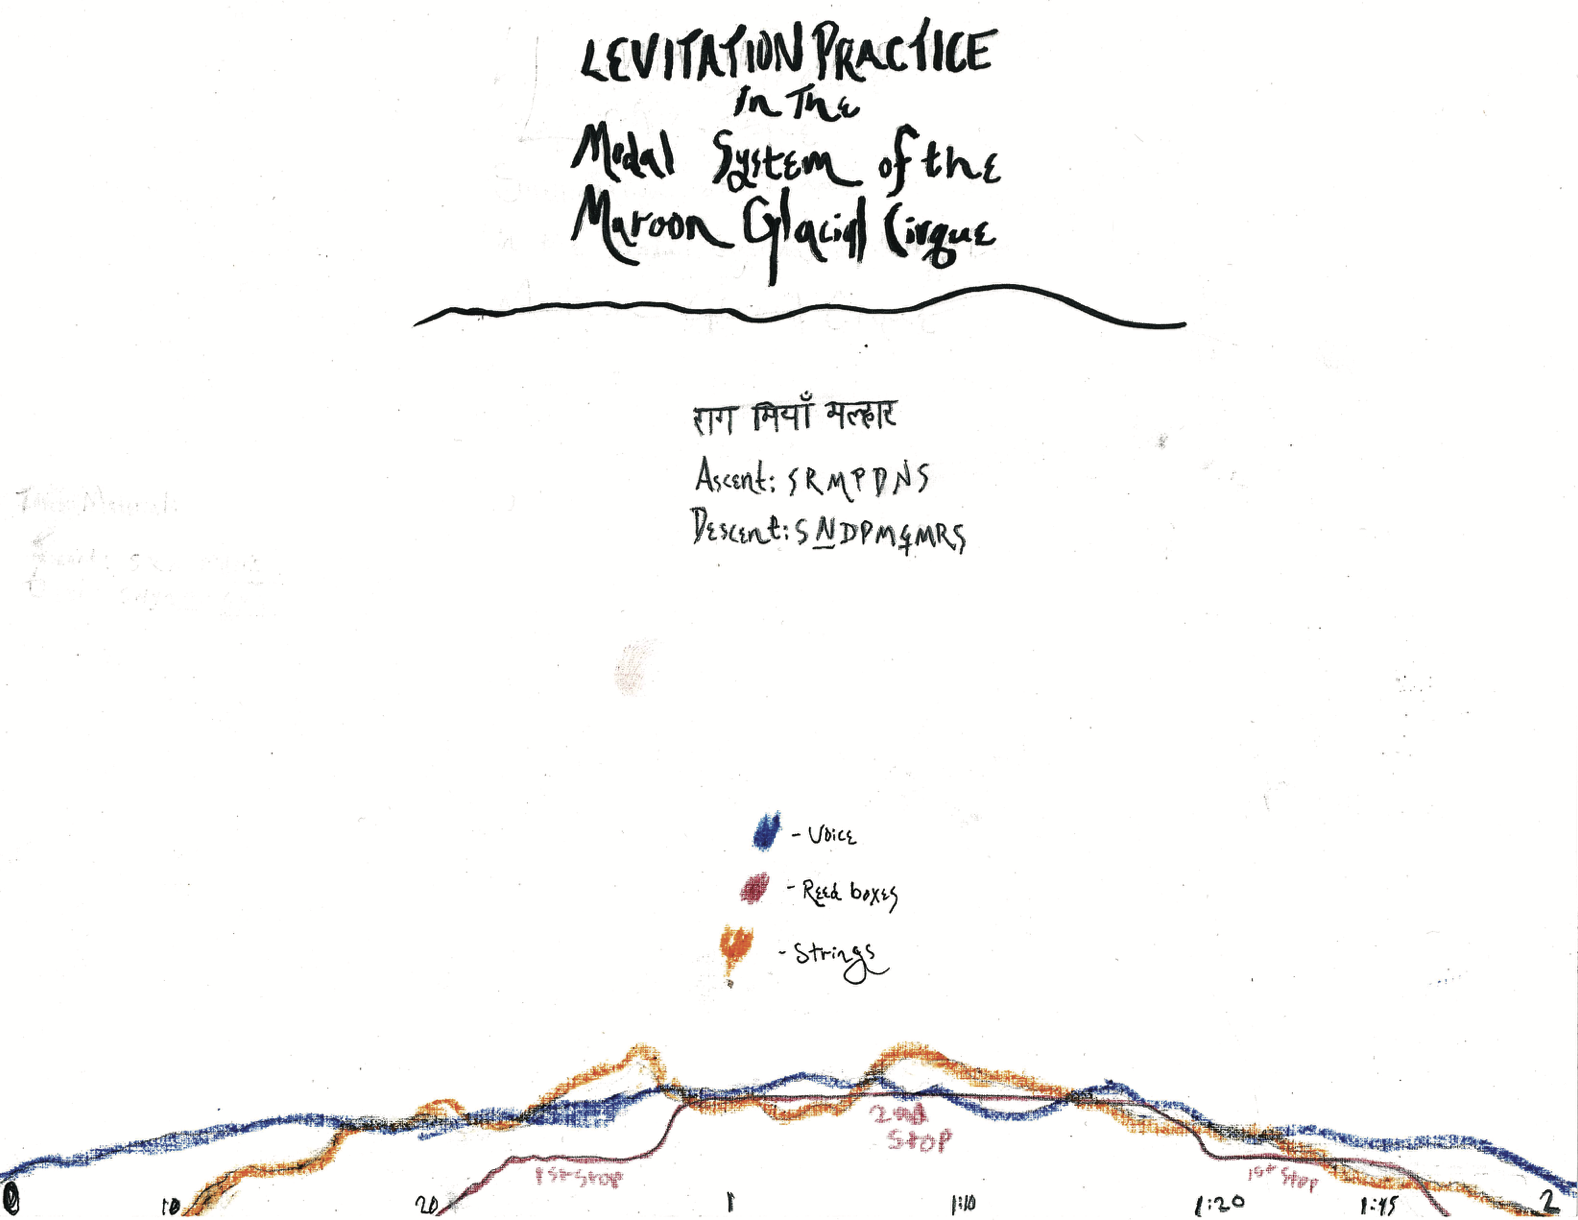 LEVITATION PRACTICE
In The
Modal System of the
Maroon Glacial Cirque
राग मियाँ मल्हार
Ascent: S R M P D N S
Descent: S N D P M g M R S
- Voice
- Reed boxes
- Strings
2nd
Stop
1st Stop
1st Stop
0 10 20 1 1:10 1:20 1:45 2